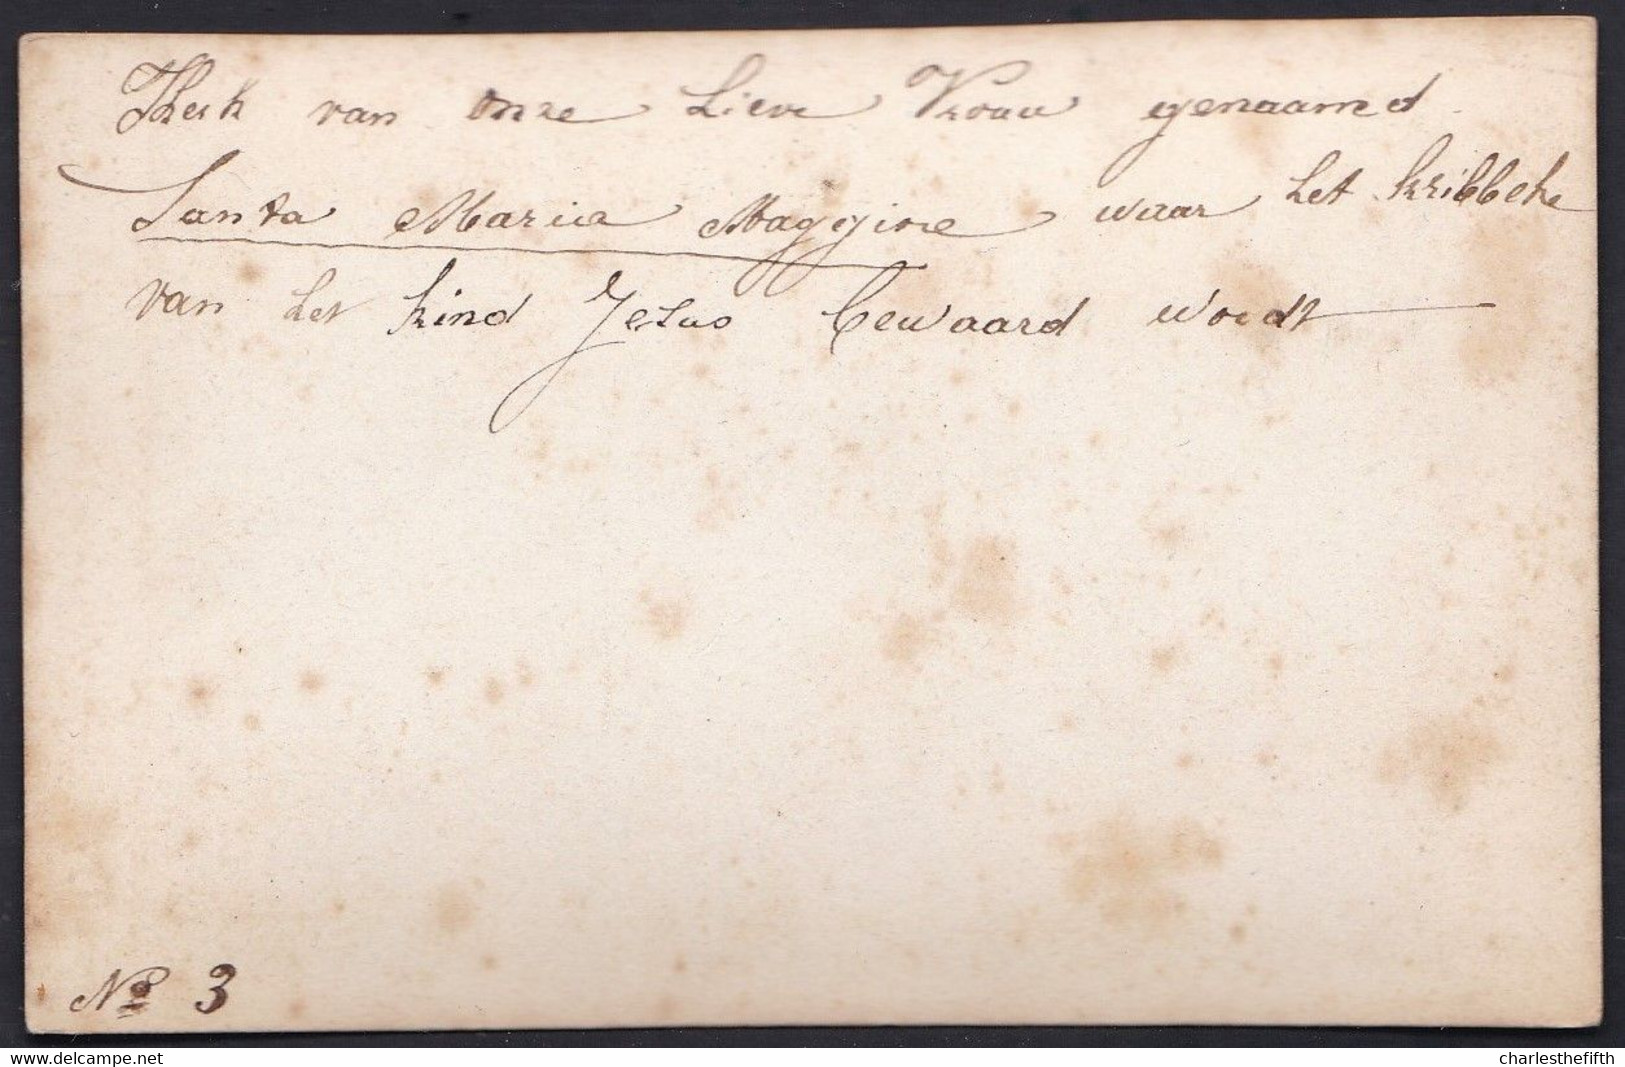 Kerk van onze Lieve Vrouw genaamd
Santa Maria Maggiore waar het kribbeke
van het kind Jesus bewaard wordt
Nº 3
delcampe.net
charlesthefifth